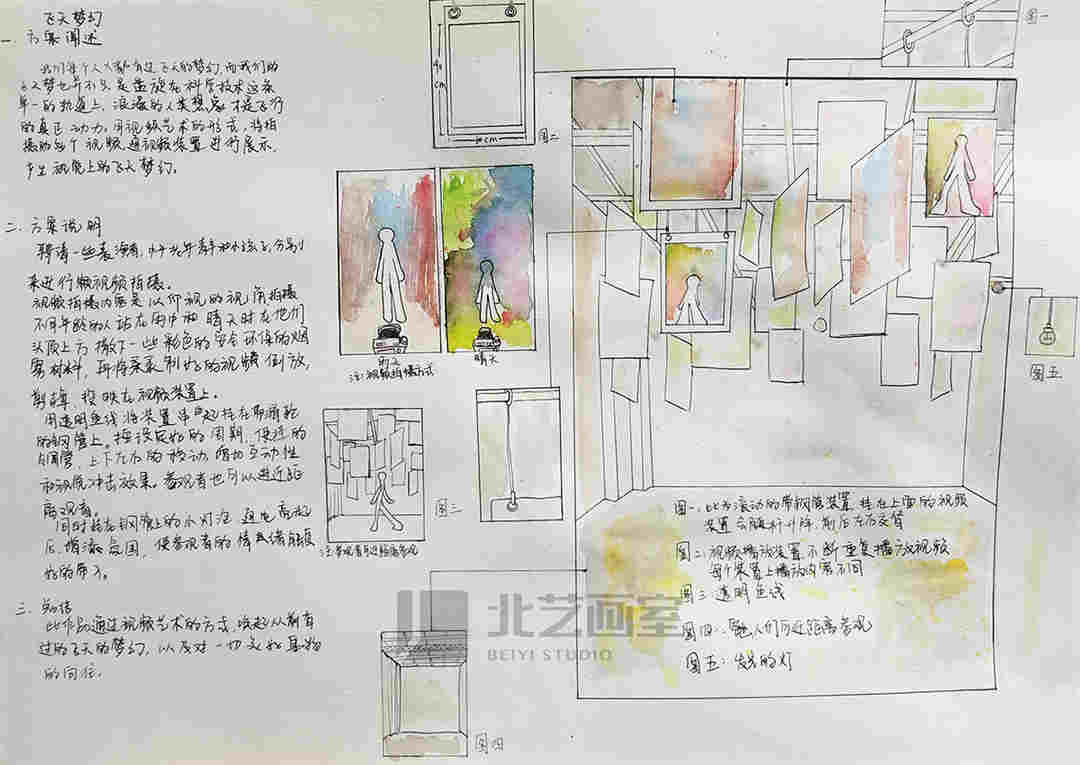 飞天梦幻
一. 方案阐述
我们每个人大都有过飞天的梦幻,而我们的
飞天梦也并不只是盘旋在科学技术这条
单一的轨道上,浪漫的人类想象才是飞行
的真正动力。用视频艺术的形式,将拍
摄的每个视频通视频装置进行展示,
产生视觉上的飞天梦幻。
二. 方案说明
聘请一些表演者,中老年青年和小孩子,分别
来进行微视频拍摄。
视频拍摄内容是以仰视的视角拍摄
不同年龄的人站在雨中和晴天时在他们
头顶上方撒下一些彩色的安全环保的烟
雾材料,再将录制好的视频倒放,
剪辑投映在视频装置上。
用透明鱼线将装置串起挂在带滑轮
的钢管上。按设定好的周期,
钢管,上下左右的移动,增加互动性
和视觉冲击效果。参观者也可以进近距
离观看。
同时挂在钢管上的小灯泡
后,增添氛围,使参观者的情绪能很
好的带入。
三. 总结
此作品通过视频艺术的方式,唤起人们有
过的飞天的梦幻,以及对一切美好事物
的向往。
40cm
图二
图一
雨天
晴天
注:视频拍摄方式
图三
注:参观者可近距离参观
图五
图一:此为滚动的带钢管装置,挂在上面的视频
装置会随杆升降,前后左右交替
图二:视频播放装置,不断重复播放视频
每个装置上播放内容不同
图三:透明鱼线
图四:人们可近距离参观
图五:发光的灯
图四
北艺画室
BEIYI STUDIO